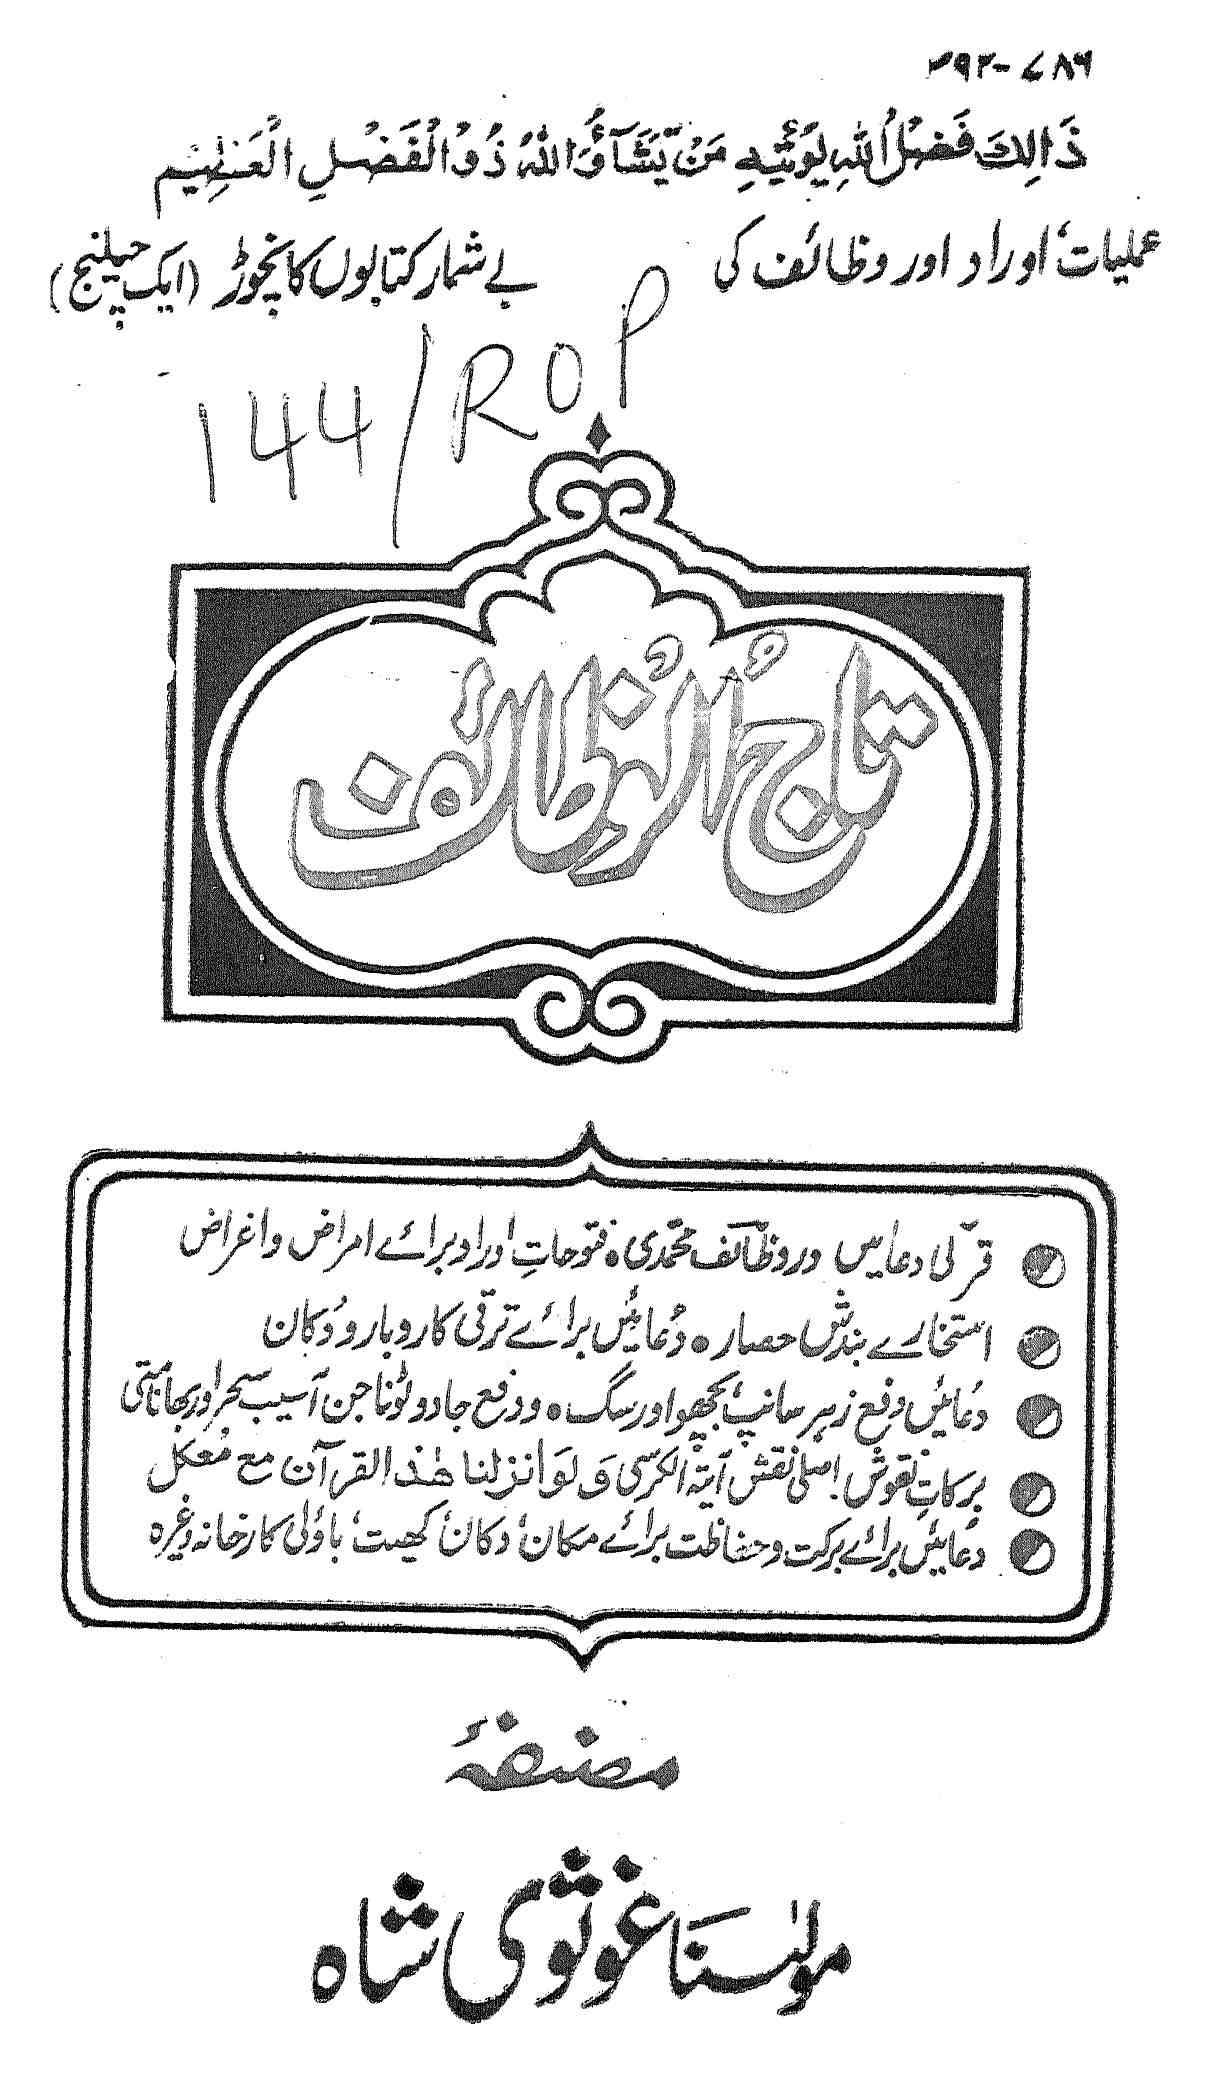 ۷۸۶-۹۲
ذَالِكَ فَضْلُ اللهِ يُوْتِيْهِ مَنْ يَّشَآؤُ وَاللهُ ذُو الْفَضْلِ الْعَظِيْم
عملیات، اوراد اور وظائف کی بے شمار کتابوں کا نچوڑ (ایک چیلنج)
144/ROP
تاجُ الوُظائف
قرآنی دعائیں درود وظائف محمّدی • فتوحاتِ اوراد برائے امراض واغراض
استخارے بندشِ حصار • دُعائیں برائے ترقی کاروبار و دُکان
دُعائیں دفع زہر سانپ، بچھو اور سگ • و دفع جادو ٹونا جن آسیب سحر اور بھانامتی
برکاتِ نقوش اصلی نقش آیتہ الکرسی وَ لَوَ انزلنا ھٰذالقرآن مع مُعکل
دعائیں برائے برکت و حفاظت برائے مکان، دکان، کھیت، باؤلی کارخانہ وغیرہ
مصنفۂ
مولٰینا غوثوی شاہ